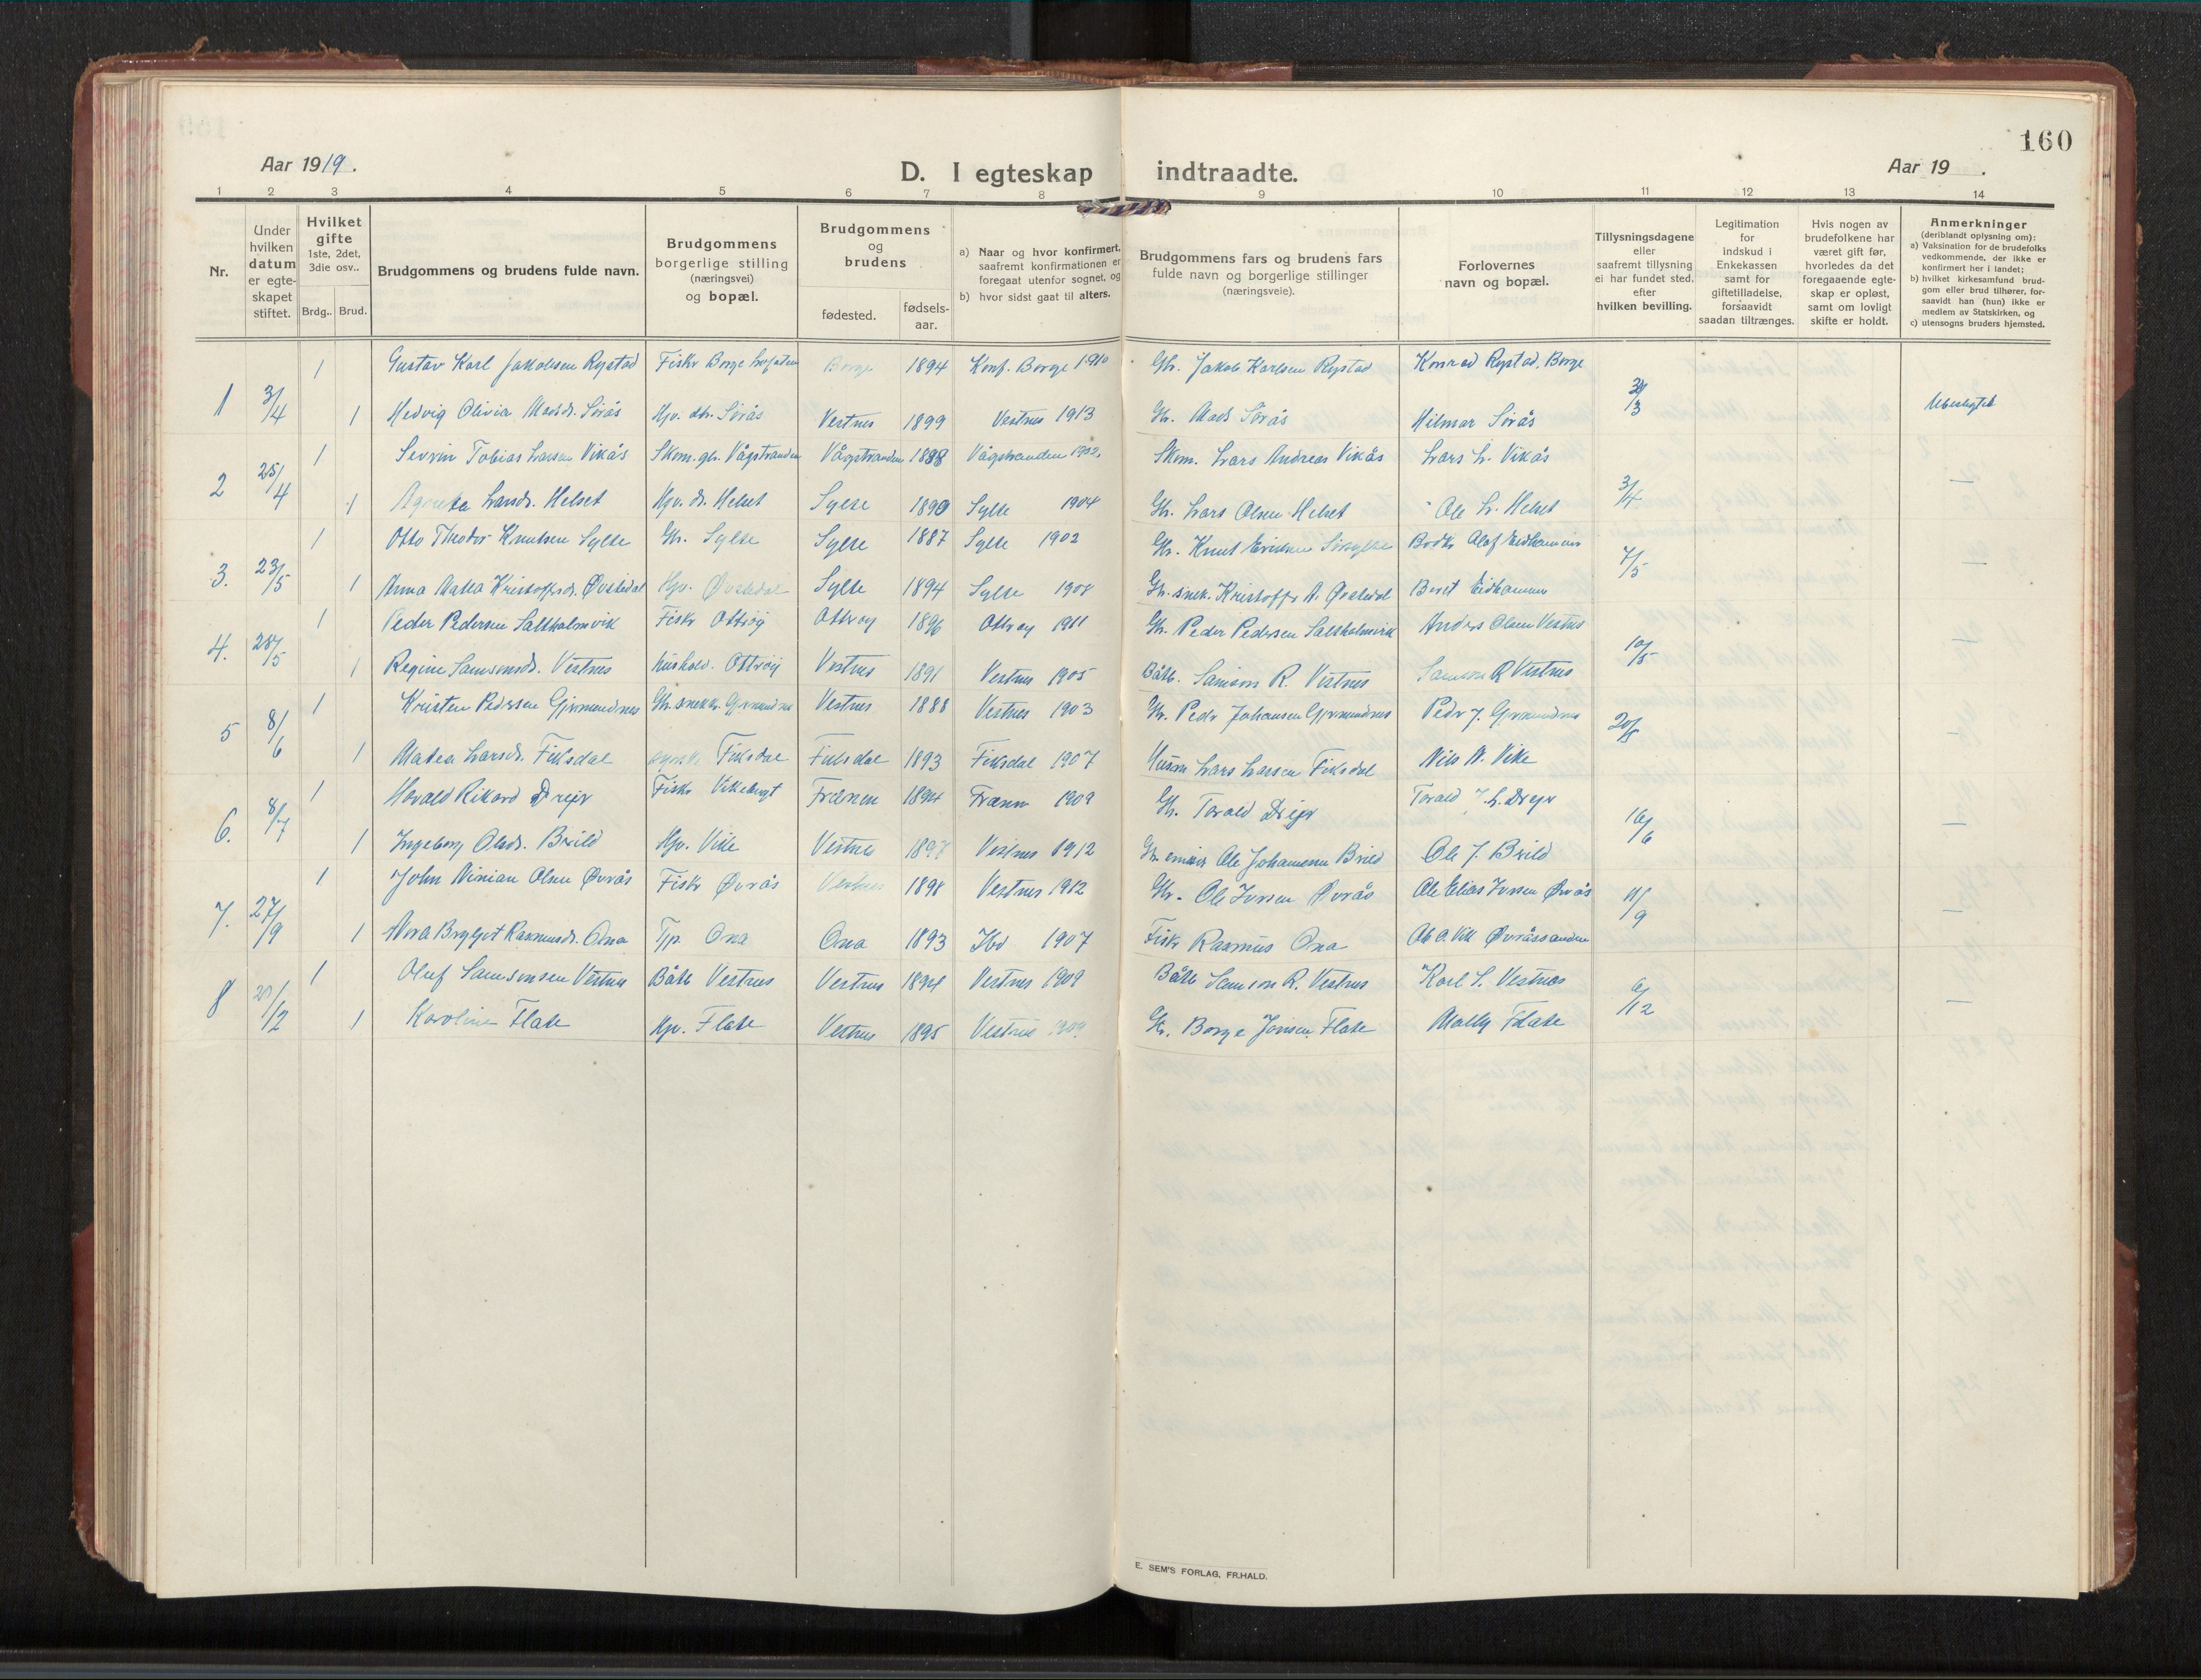 160
Aar 1919.
D. I egteskap indtraadte.
Aar 19 .
1 2 3 4 5 6 7 8 9 10 11 12 13 14
Nr.
Under hvilken datum er egte- skapet stiftet.
Hvilket gifte 1ste, 2det, 3die osv..
Brdg.. Brud.
Brudgommens og brudens fulde navn.
Brudgommens borgerlige stilling (næringsvei) og bopæl.
Brudgommens og brudens
fødested. fødsels- aar.
a) Naar og hvor konfirmert, saafremt konfirmationen er foregaat utenfor sognet, og
b) hvor sidst gaat til alters.
Brudgommens fars og brudens fars fulde navn og borgerlige stillinger (næringsveie).
Forlovernes navn og bopæl.
Tillysningsdagene eller saafremt tillysning ei har fundet sted. efter hvilken bevilling.
Legitimation for indskud i Enkekassen samt for giftetilladelse, forsaavidt saadan tiltrænges.
Hvis nogen av brudefolkene har været gift før, hvorledes da det foregaaende egte- skap er opløst, samt om lovligt skifte er holdt.
Anmerkninger (deriblandt oplysning om):
a) Vaksination for de brudefolks vedkommende, der ikke er konfirmert her i landet;
b) hvilket kirkesamfund brud- gom eller brud tilhører, for- saavidt han (hun) ikke er medlem av Statskirken, og
c) utensogns bruders hjemsted.
1 Gustav Karl Jakobsen Rystad Fisker Borge Lofoten Borge 1894 Konf. Borge 1910 Gbr. Jakob Karlsen Rystad Konrad Rystad, Borge
1 3/4 1 Hedvig Olivia Madsdr. Sørås Hjv. dtr. Sørås Vestnes 1899 Vestnes 1913 Gbr. Mads Sørås Hilmar Sørås
1 Severin Tobias Larsen Vikås Skom. gbr. Vågstranden Vågstranden 1888 Vågstranden 1902 Skom. Lars Andreas Vikås Lars L. Vikås
2 25/4 1 Larsdr. Helset Hjv. d. Helset Sylte 1890 Sylte 1904 Gbr. Lars Olsen Helset Ole L. Helset 3/4 —
1 Otto Theodor Knutsen Sylte Gbr. Sylte Sylte 1887 Sylte 1902 Gbr. Knut Eriksen Sørsylte
3. 23/5 1 Anna Matea Kristoffersdr. Øvstedal Hjv. Øvstedal Sylte 1894 Sylte 1908 Gbr. snek. Kristoffer A. Øvstedal Beret Eidhammer 7/5 —
1 Peder Pedersen Saltholmvik Fisker Ottrøy Ottrøy 1896 Ottrøy 1911 Gbr. Peder Pedersen Saltholmvik Anders Olsen Vestnes
4. 28/5 1 Regine Samsonsdr. Vestnes hushold. Ottrøy Vestnes 1891 Vestnes 1905 Båtb. Samson R. Vestnes Samson R Vestnes 10/5 —
1 Kristen Pedersen Gjermundnes Gbr. snekk. Gjermundnes Vestnes 1888 Vestnes 1903 Gbr. Peder Johansen Gjermundnes Peder J. Gjermundnes
5 8/6 1 Matea Larsdr. Fiksdal Fiksdal Fiksdal 1893 Fiksdal 1907 Husm Lars Larsen Fiksdal Nils N. Vike 20/5 —
1 Harald Rikard Drejer Fisker Vikebugt Frænen 1894 Frænen 1909 Gbr. Torald Drejer Torald J. L. Drejer
6. 8/7 1 Ingeborg Olsdr. Brild Hjv. Vike Vestnes 1897 Vestnes 1912 Ole Johannesen Brild Ole J. Brild 16/6 —
1 John Ninian Olsen Øvrås Fisker Øvrås Vestnes 1898 Vestnes 1912 Gbr. Ole Iversen Øvrås Ole Elias Iversen Øvrås
7. 27/9 1 Nora Brygjet Rasmusdr. Ona Tjp. Ona Ona 1893 Ibd 1907 Fisker Rasmus Ona Ole O. Vik Øvråssanden 11/9 —
1 Oluf Samsonsen Vestnes Båtb Vestnes Vestnes 1894 Vestnes 1909 Båtb Samson R. Vestnes Karl S. Vestnes
8 1 Karoline Flate Hjv. Flate Vestnes 1895 Vestnes 1909 Gbr. Borge Jonsen Flate Molly Flate 6/12 —
E. SEM'S FORLAG, FR.HALD.